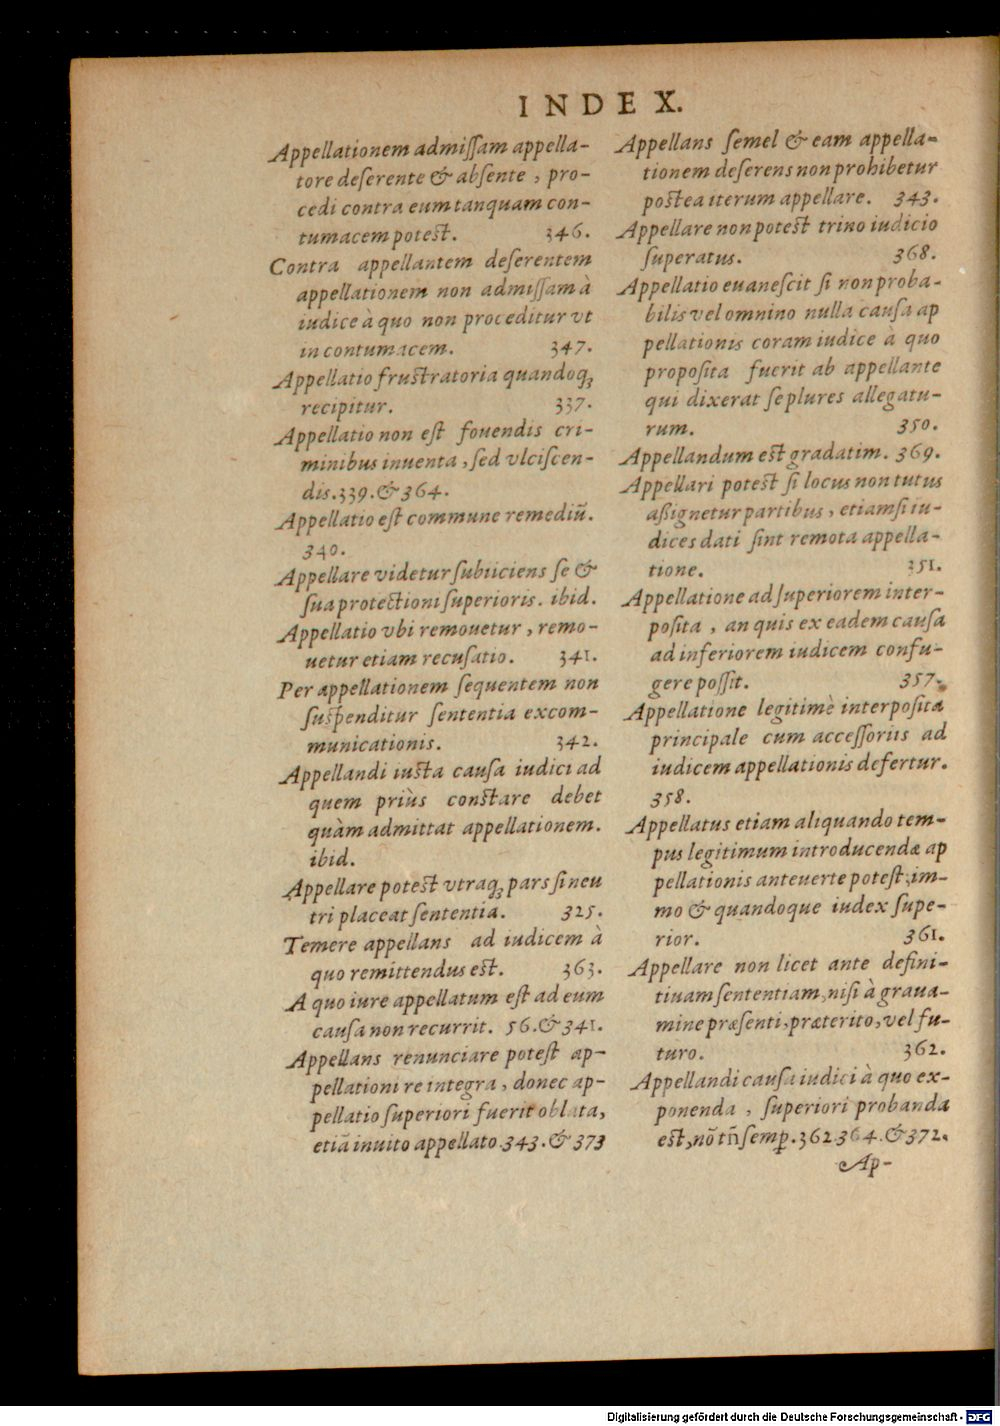 INDEX.
Appellationem admiſſam appella-
tore deſerente & abſente, pro-
cedi contra eum tanquam con-
tumacem poteſt. 346.
Contra appellantem deſerentem
appellationem non admiſſam à
iudice à quo non proceditur vt
in contumacem. 347.
Appellatio fruſtratoria quandoq;
recipitur. 337.
Appellatio non eſt fouendis cri-
minibus inuenta, ſed vlciſcen-
dis. 339. & 364.
Appellatio eſt commune remediū.
340.
Appellare videtur ſubiiciens ſe &
ſua protectioni ſuperioris. ibid.
Appellatio vbi remouetur, remo-
uetur etiam recuſatio. 341.
Per appellationem ſequentem non
ſuſpenditur ſententia excom-
municationis. 342.
Appellandi iuſta cauſa iudici ad
quem priùs conſtare debet
quàm admittat appellationem.
ibid.
Appellare poteſt vtraq; pars ſi neu
tri placeat ſententia. 325.
Temere appellans ad iudicem à
quo remittendus eſt. 363.
A quo iure appellatum eſt ad eum
cauſa non recurrit. 56. & 341.
Appellans renunciare poteſt ap-
pellationi re integra, donec ap-
pellatio ſuperiori fuerit oblata,
etiā inuito appellato. 343. & 373
Appellans ſemel & eam appella-
tionem deſerens non prohibetur
poſtea iterum appellare. 343.
Appellare non poteſt trino iudicio
ſuperatus. 368.
Appellatio euaneſcit ſi non proba-
bilis vel omnino nulla cauſa ap
pellationis coram iudice à quo
propoſita fuerit ab appellante
qui dixerat ſe plures allegatu-
rum. 350.
Appellandum eſt gradatim. 369.
Appellari poteſt ſi locus non tutus
aßignetur partibus, etiamſi iu-
dices dati ſint remota appella-
tione. 351.
Appellatione ad ſuperiorem inter-
poſita, an quis ex eadem cauſa
ad inferiorem iudicem confu-
gere poſſit. 357.
Appellatione legitimè interpoſita
principale cum acceſſoriis ad
iudicem appellationis defertur.
358.
Appellatus etiam aliquando tem-
pus legitimum introducendæ ap
pellationis anteuerte poteſt, im-
mo & quandoque iudex ſupe-
rior. 361.
Appellare non licet ante defini-
tiuam ſententiam, niſi à graua-
mine præſenti, præterito, vel fu-
turo. 362.
Appellandi cauſa iudici à quo ex-
ponenda, ſuperiori probanda
eſt, nō tñ ſemꝑ. 362. 364. & 372.
Ap-
Digitalisierung gefördert durch die Deutsche Forschungsgemeinschaft - DFG